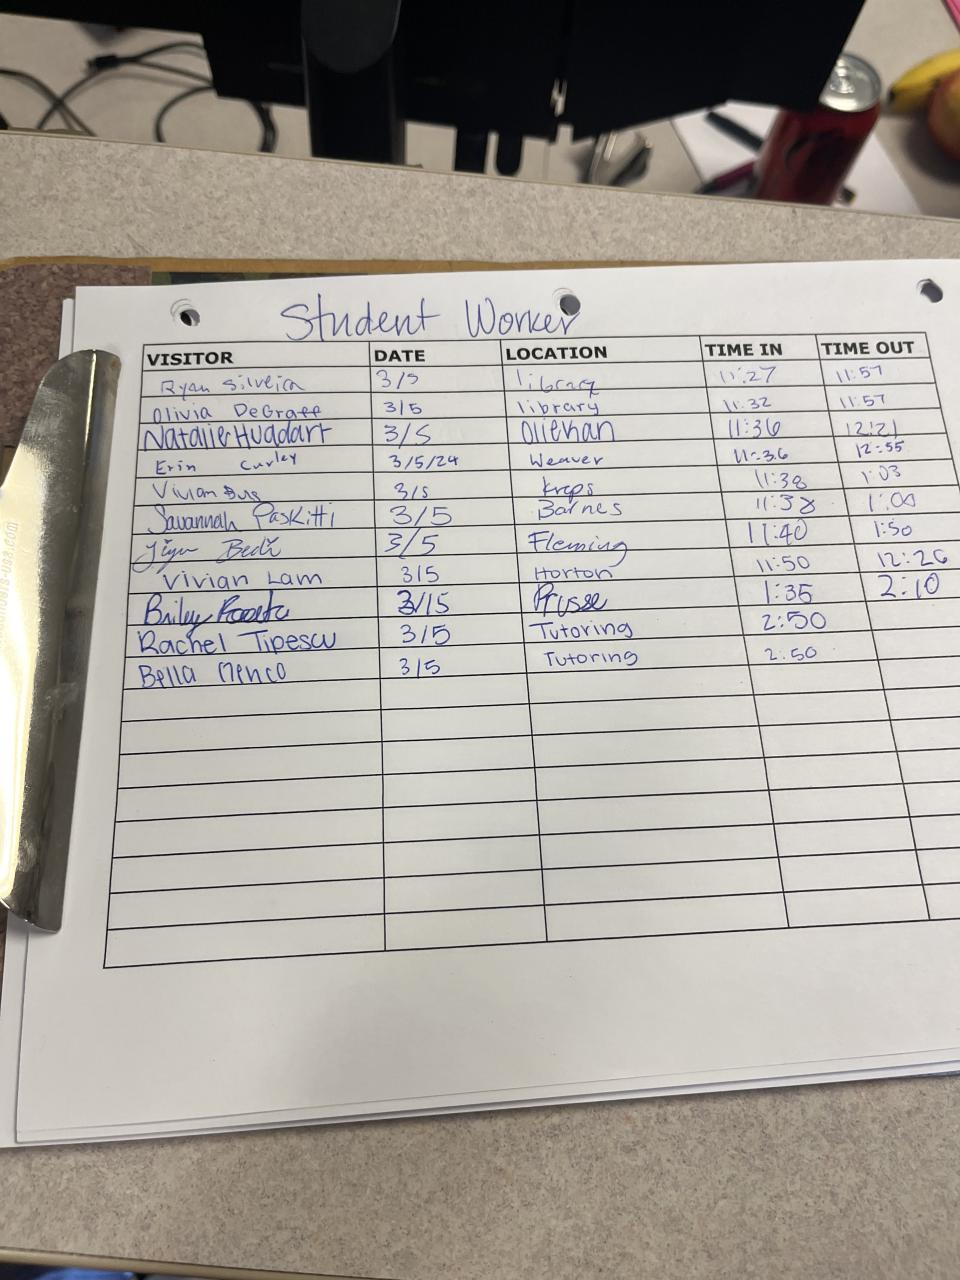 Student Worker
VISITOR DATE LOCATION TIME IN TIME OUT
Ryan Silveira 3/5 library 11:27 11:57
Olivia DeGraff 3/5 library 11:32 11:57
Natalie Huddart 3/5 11:36 12:21
Erin Curley 3/5/24 Weaver 11:36 12:55
Vivian 3/5 Kreps 11:38 1:03
Savannah Paskitti 3/5 Barnes 11:38 1:00
3/5 Fleming 11:40 1:50
Vivian Lam 3/5 Horton 11:50 12:26
Briley 3/15 Prusse 1:35 2:10
Rachel Tipescu 3/5 Tutoring 2:50
Bella Menco 3/5 Tutoring 2:50